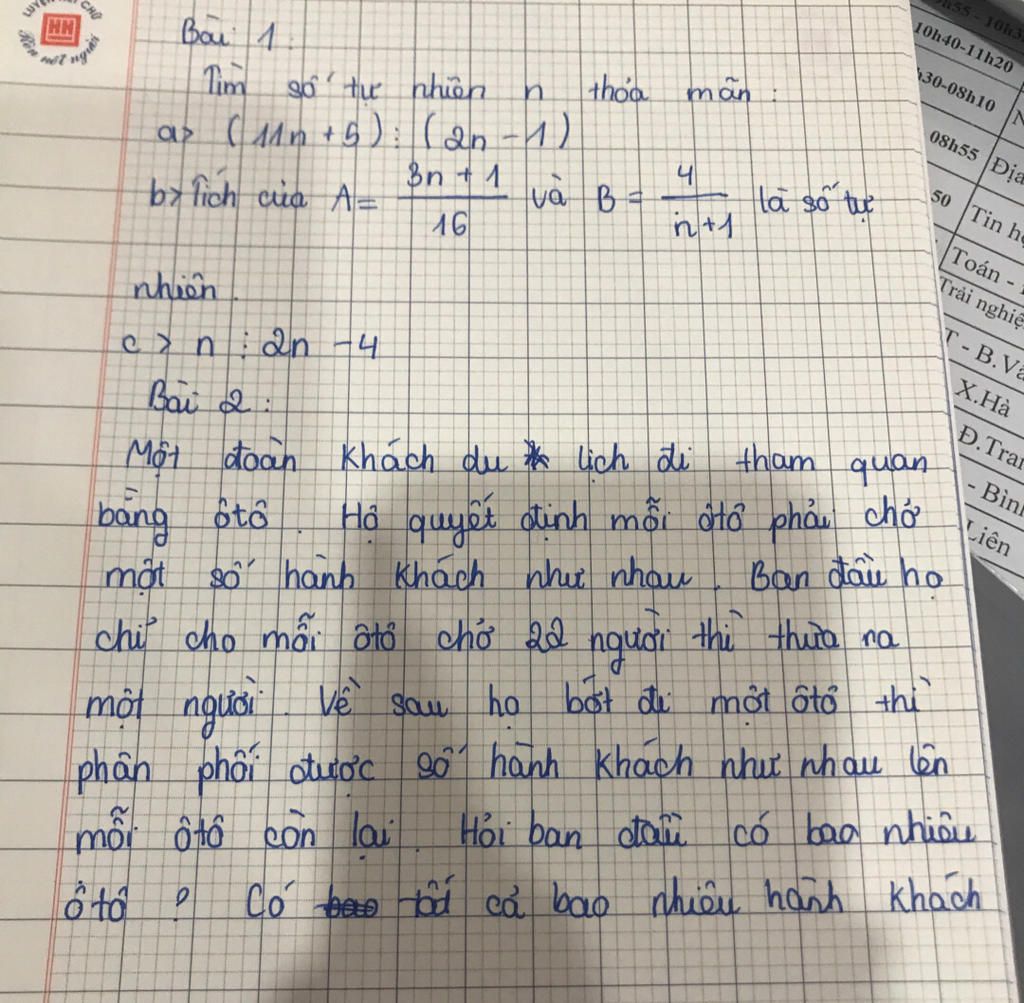 LUYỆN NÉT CHỮ
HN
Rèn nết người
Bài 1:
Tìm số tự nhiên n thỏa mãn:
a> (11n + 5) ⋮ (2n - 1)
b> Tích của A = (3n + 1)/16 và B = 4/(n + 1) là số tự
nhiên.
c> n ⋮ 2n - 4
Bài 2:
Một đoàn khách du lịch đi tham quan
bằng ôtô. Họ quyết định mỗi ôtô phải chở
một số hành khách như nhau. Ban đầu họ
chỉ cho mỗi ôtô chở 22 người thì thừa ra
một người. Về sau họ bớt đi một ôtô thì
phân phối được số hành khách như nhau lên
mỗi ôtô còn lại. Hỏi ban đầu có bao nhiêu
ôtô? Có bao tất cả bao nhiêu hành khách
10h40-11h20
08h55
Địa
50
Tin h
Toán -
Trải nghiệ
X.Hà
Đ.Tra
- Bìn
Liên